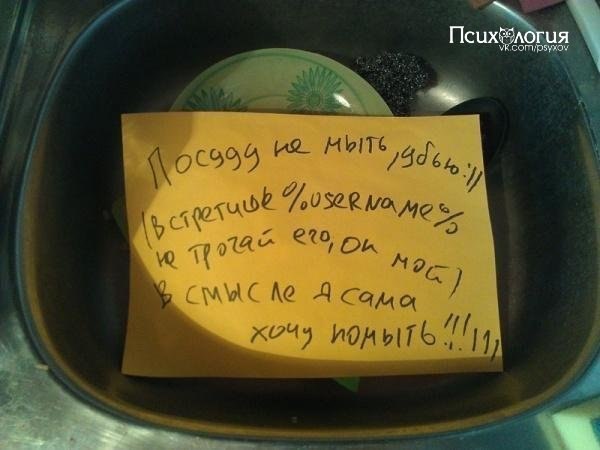 Психология
vk.com/psyxov
Посуду не мыть, убью:))
(встретишь %username%
не трогай его, он мой)
в смысле я сама
хочу помыть!!!111